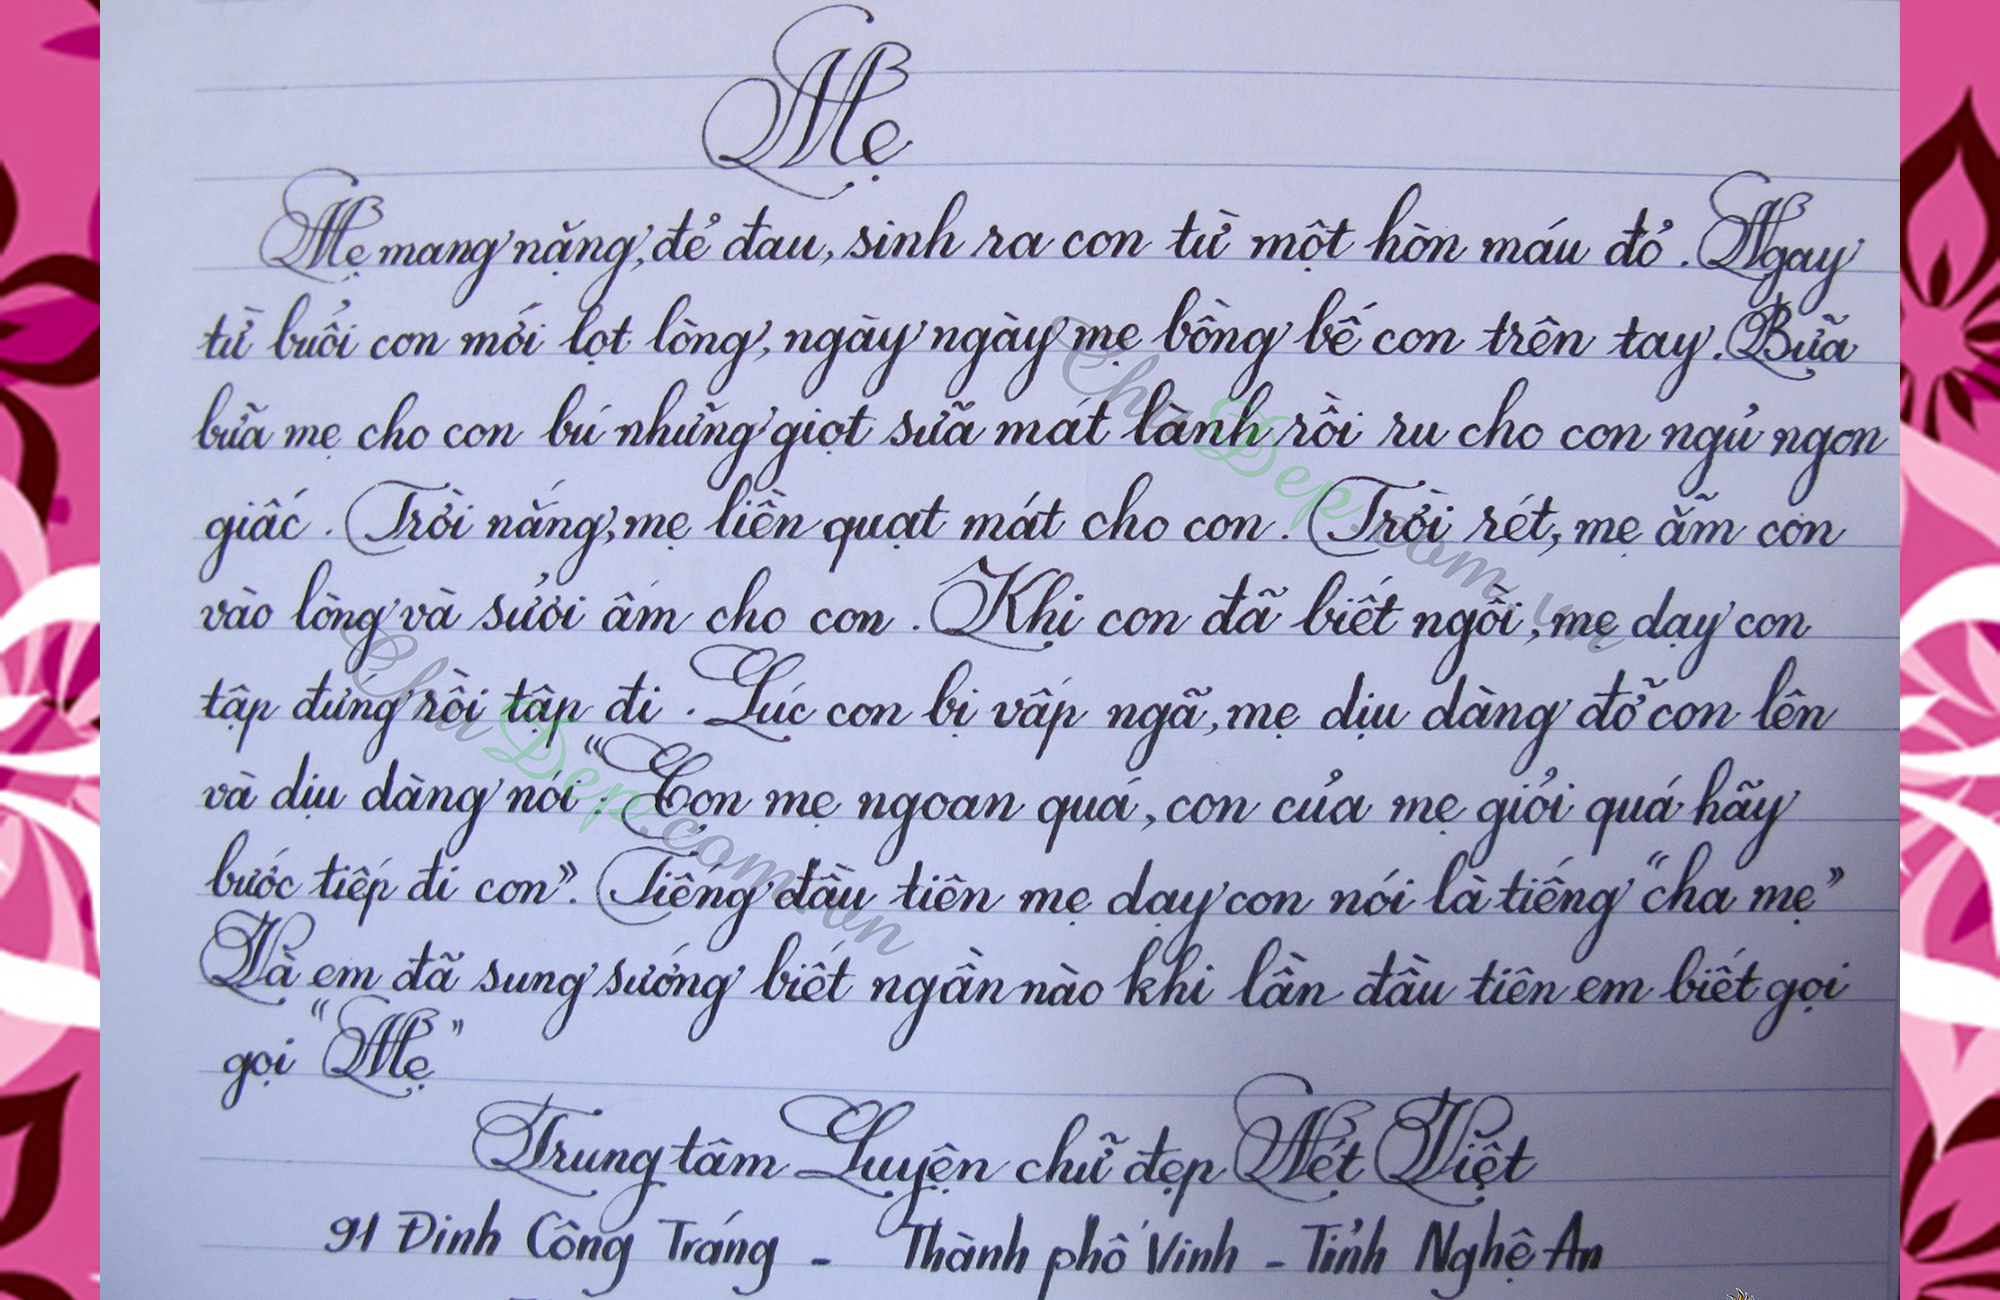 Mẹ
Mẹ mang nặng, đẻ đau, sinh ra con từ một hòn máu đỏ. Ngay
từ buổi con mới lọt lòng, ngày ngày mẹ bồng bế con trên tay. Bữa
bữa mẹ cho con bú những giọt sữa mát lành rồi ru cho con ngủ ngon
giấc. Trời nắng, mẹ liền quạt mát cho con. Trời rét, mẹ ẵm con
vào lòng và sưởi ấm cho con. Khi con đã biết ngồi, mẹ dạy con
tập đứng rồi tập đi. Lúc con bị vấp ngã, mẹ dịu dàng đỡ con lên
và dịu dàng nói: "Con mẹ ngoan quá, con của mẹ giỏi quá hãy
bước tiếp đi con". Tiếng đầu tiên mẹ dạy con nói là tiếng "cha mẹ"
Và em đã sung sướng biết ngần nào khi lần đầu tiên em biết gọi
gọi "Mẹ"
Trung tâm Luyện chữ đẹp Nét Việt
91 Đinh Công Tráng - Thành phố Vinh - Tỉnh Nghệ An
ChuDep.com.vn
ChuDep.com.vn